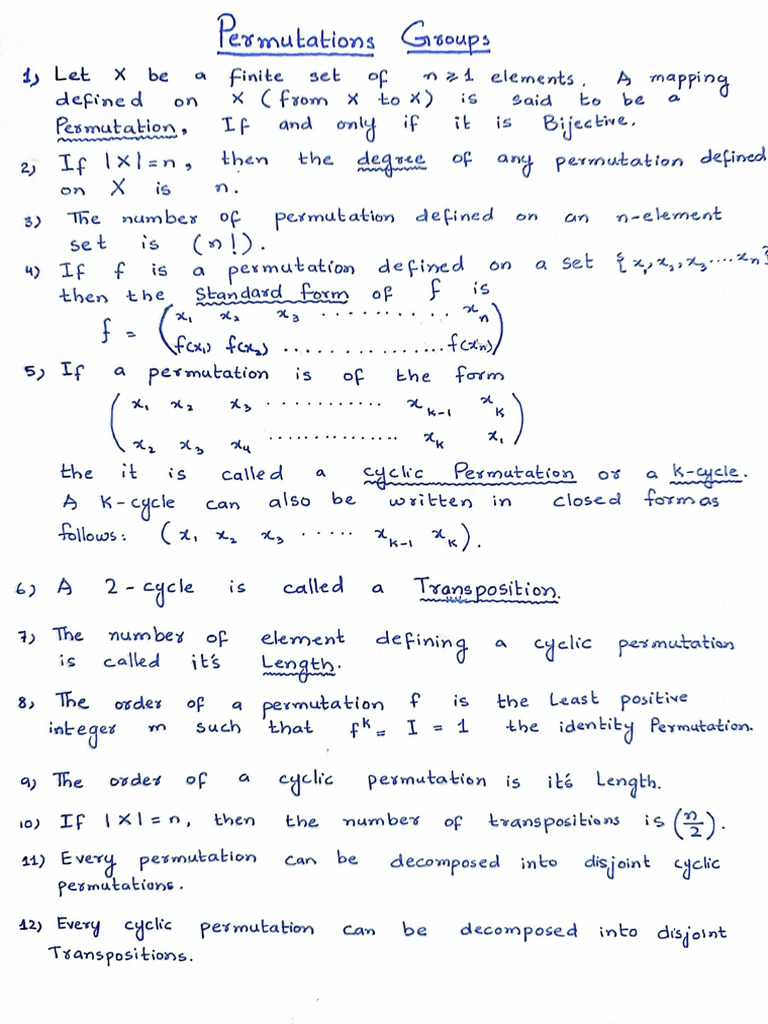 Permutations Groups
1) Let X be a finite set of n≥1 elements. A mapping
defined on X (from X to X) is said to be a
Permutation, If and only if it is Bijective.
2) If |X|=n, then the degree of any permutation defined
on X is n.
3) The number of permutation defined on an n-element
set is (n!).
4) If f is a permutation defined on a set {x₁,x₂,x₃....xₙ}
then the Standard form of f is
f = (x₁ x₂ x₃ ........... xₙ
f(x₁) f(x₂) ................f(xₙ))
5) If a permutation is of the form
(x₁ x₂ x₃ ........... xₖ₋₁ xₖ
x₂ x₃ x₄ ............... xₖ x₁)
the it is called a cyclic Permutation or a k-cycle.
A K-cycle can also be written in closed form as
follows: (x₁ x₂ x₃ ..... xₖ₋₁ xₖ).
6) A 2-cycle is called a Transposition.
7) The number of element defining a cyclic permutation
is called it's Length.
8) The order of a permutation f is the Least positive
integer m such that fᵏ = I = 1 the identity Permutation.
9) The order of a cyclic permutation is it's Length.
10) If |X|=n, then the number of transpositions is (n/2).
11) Every permutation can be decomposed into disjoint cyclic
permutations.
12) Every cyclic permutation can be decomposed into disjoint
Transpositions.